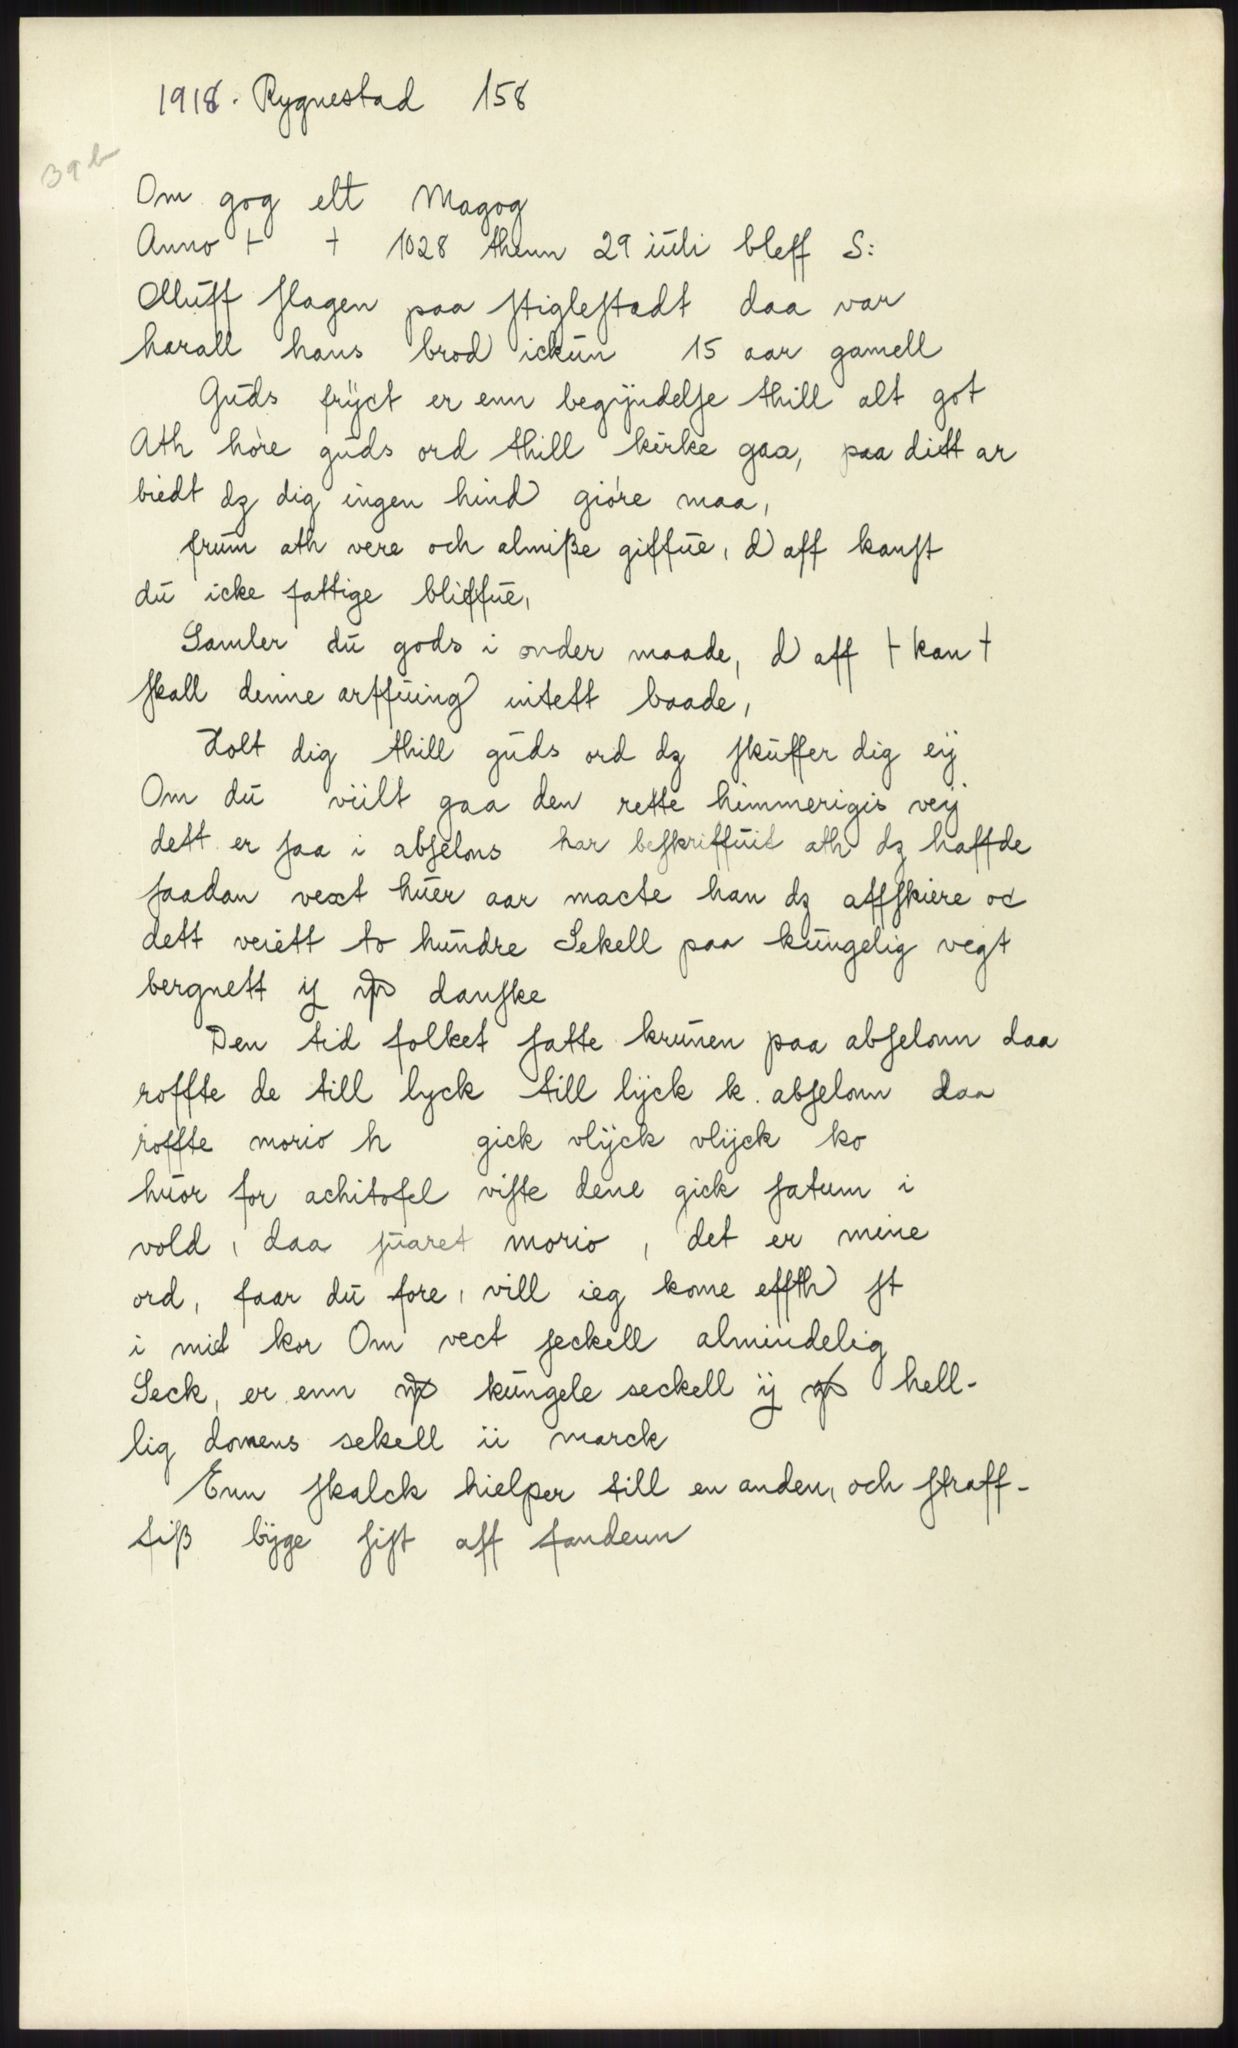 1918. Rygnestad 158
39b
Om gog elt Magog
Anno + + 1028 thenn 29 iuli bleff S:
Olluff slagen paa stiglestadt daa var
harall hans brod ickun 15 aar gamell
Guds frÿct er enn begÿndelse thill alt got
Ath høre guds ord thill kirke gaa, paa ditt ar
biedt dz dig ingen hind giøre maa,
frum ath vere och almiße giffue, d aff kanst
du icke fattige bliffue,
Samler du gods i onder maade, d aff + kan +
skall denne arffuing intett baade,
Holt dig thill guds ord dz skuffer dig eÿ
Om du viilt gaa den rette himmerigis veÿ
dett er saa i abselons har beskriffuit ath dz haffde
saadan vext huer aar macte han dz affskiere oc
dett veiett to hundre Sekell paa kungelig vegt
bergnett ij danske
Den tid folket satte krunen paa abselonn daa
roffte de till lyck till lÿck k. abselonn daa
roffte morio h gick vlÿck vlÿck ko
huor for achitofel viste dene gick satum i
vold, daa suaret morio, det er mine
ord, faar du fore, vill ieg kome effth st
i mit kor Om vect seckell almindelig
Seck, er enn kungele seckell ÿ hell-
lig domens sekell ii marck
Enn skalck hielper till en anden, och straff-
tiß bÿge sist aff fandenn